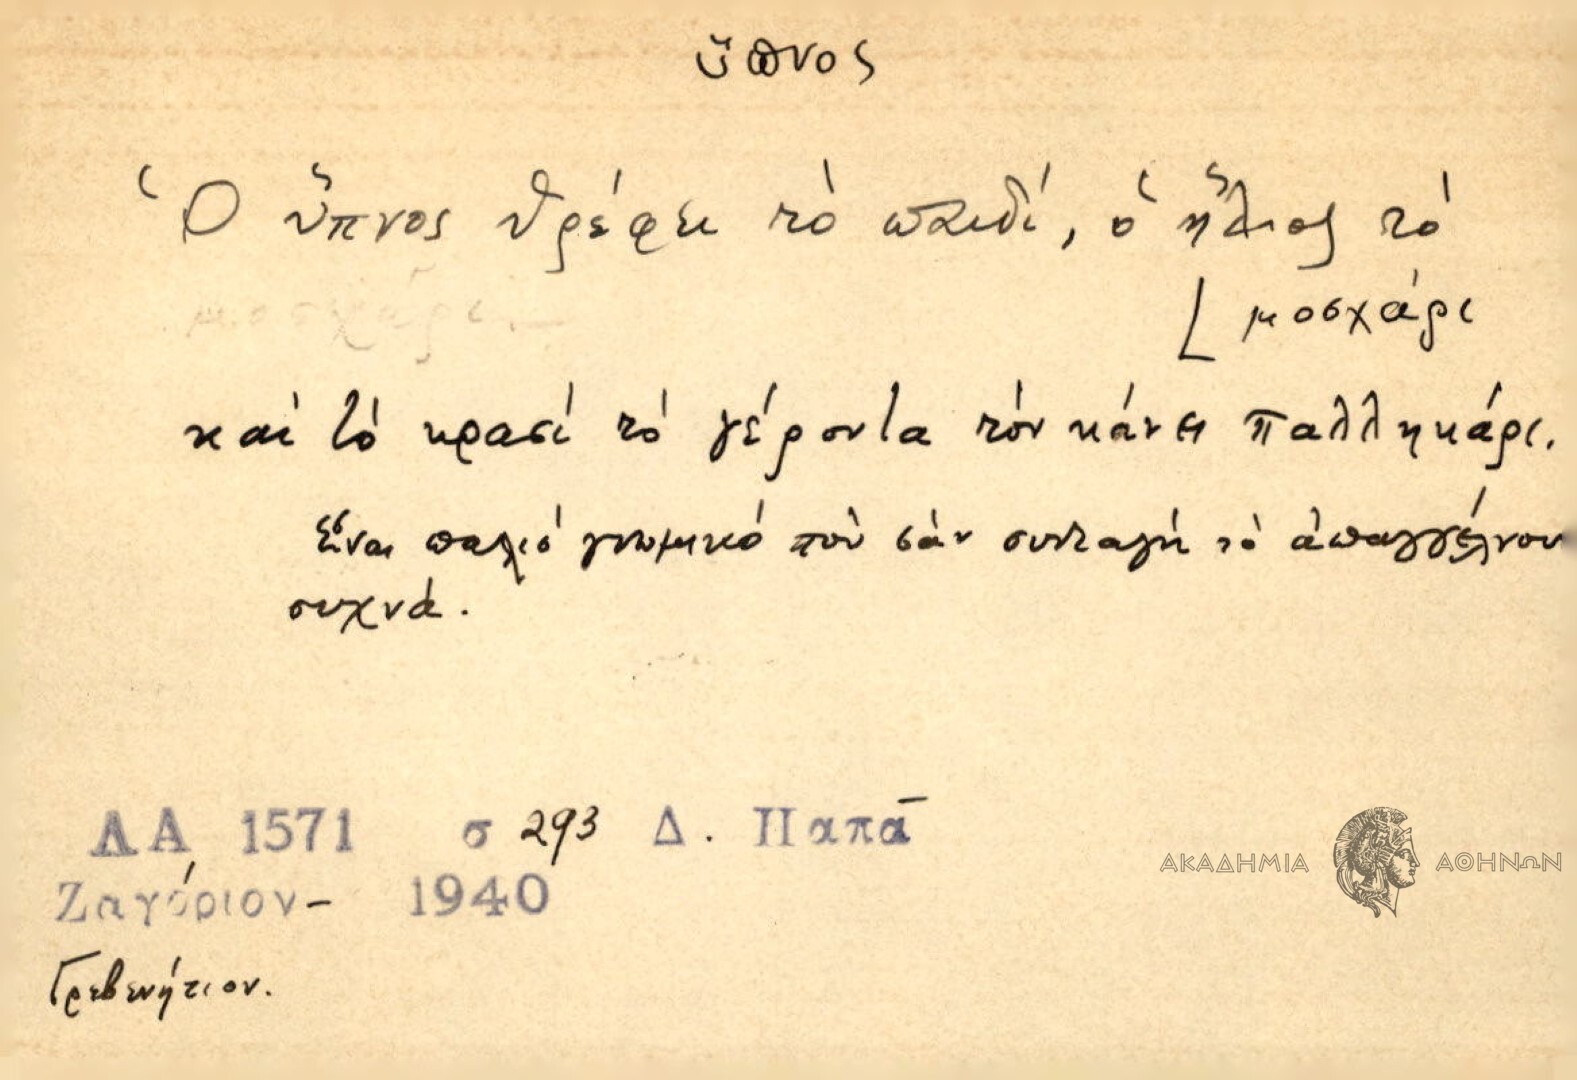 ὕπνος
Ὁ ὕπνος θρέφει τὸ παιδί, ὁ ἥλιος τὸ
[μοσχάρι
καὶ τὸ κρασὶ τὸ γέροντα τὸν κάνει παλληκάρι.
Εἶναι παλιὸ γνωμικό ποὺ σὰν συνταγὴ τὸ ἀπαγγέλνουν
συχνά.
ΛΑ 1571 σ 293 Δ. Παπᾶ
Ζαγόριον - 1940
Γρεβενήτιον.
ΑΚΑΔΗΜΙΑ ΑΘΗΝΩΝ